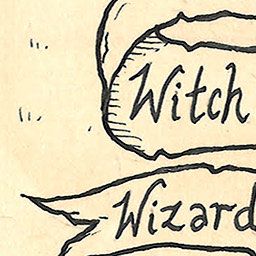 Witch
Wizard